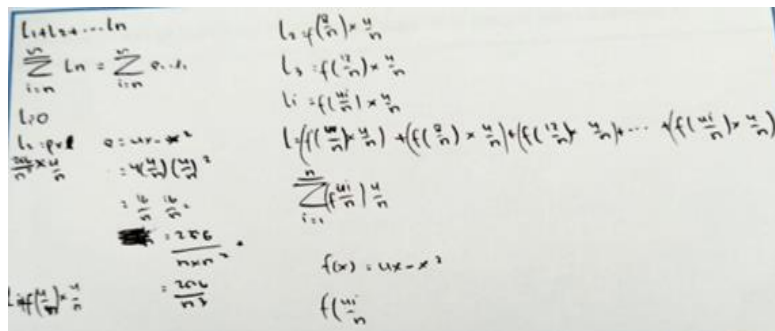 L₁+L₂+...Ln
∑ Ln = ∑
i=n i=n
L=0
L₁ = p×l
e = 4x - x²
= 4(4/n)(4/n)²
= 16/n 16/n²
= 256/n×n²
= 256/n³
f(4/n)×4/n
L₂ = f(8/n)×4/n
L₃ = f(12/n)×4/n
Li = f(4i/n)×4/n
L = (f(4/n)×4/n) + (f(8/n)×4/n) + (f(12/n)×4/n) + ... + (f(4i/n)×4/n)
n
∑ (f 4i/n) 4/n
i=1
f(x) = 4x - x²
f(4i/n